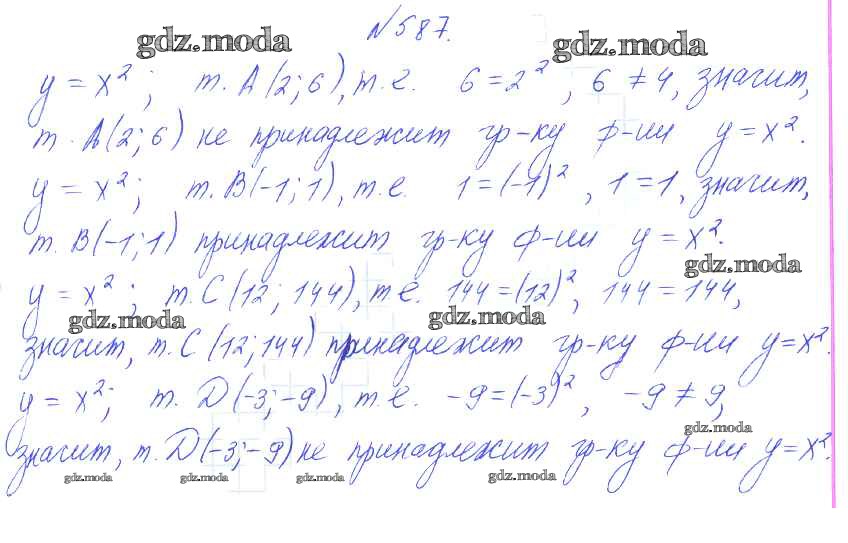 №587.
gdz.moda gdz.moda
y = x²; т. А(2; 6), т.е. 6 = 2², 6 ≠ 4, значит,
т. А(2; 6) не принадлежит гр-ку ф-ии y = x².
y = x²; т. В(-1; 1), т.е. 1 = (-1)², 1 = 1, значит,
т. В(-1; 1) принадлежит гр-ку ф-ии y = x².
gdz.moda
y = x²; т. С(12; 144), т.е. 144 = (12)², 144 = 144,
gdz.moda gdz.moda
значит, т. С(12; 144) принадлежит гр-ку ф-ии y = x².
y = x²; т. D(-3; -9), т.е. -9 = (-3)², -9 ≠ 9,
gdz.moda
значит, т. D(-3; -9) не принадлежит гр-ку ф-ии y = x².
gdz.moda gdz.moda gdz.moda gdz.moda